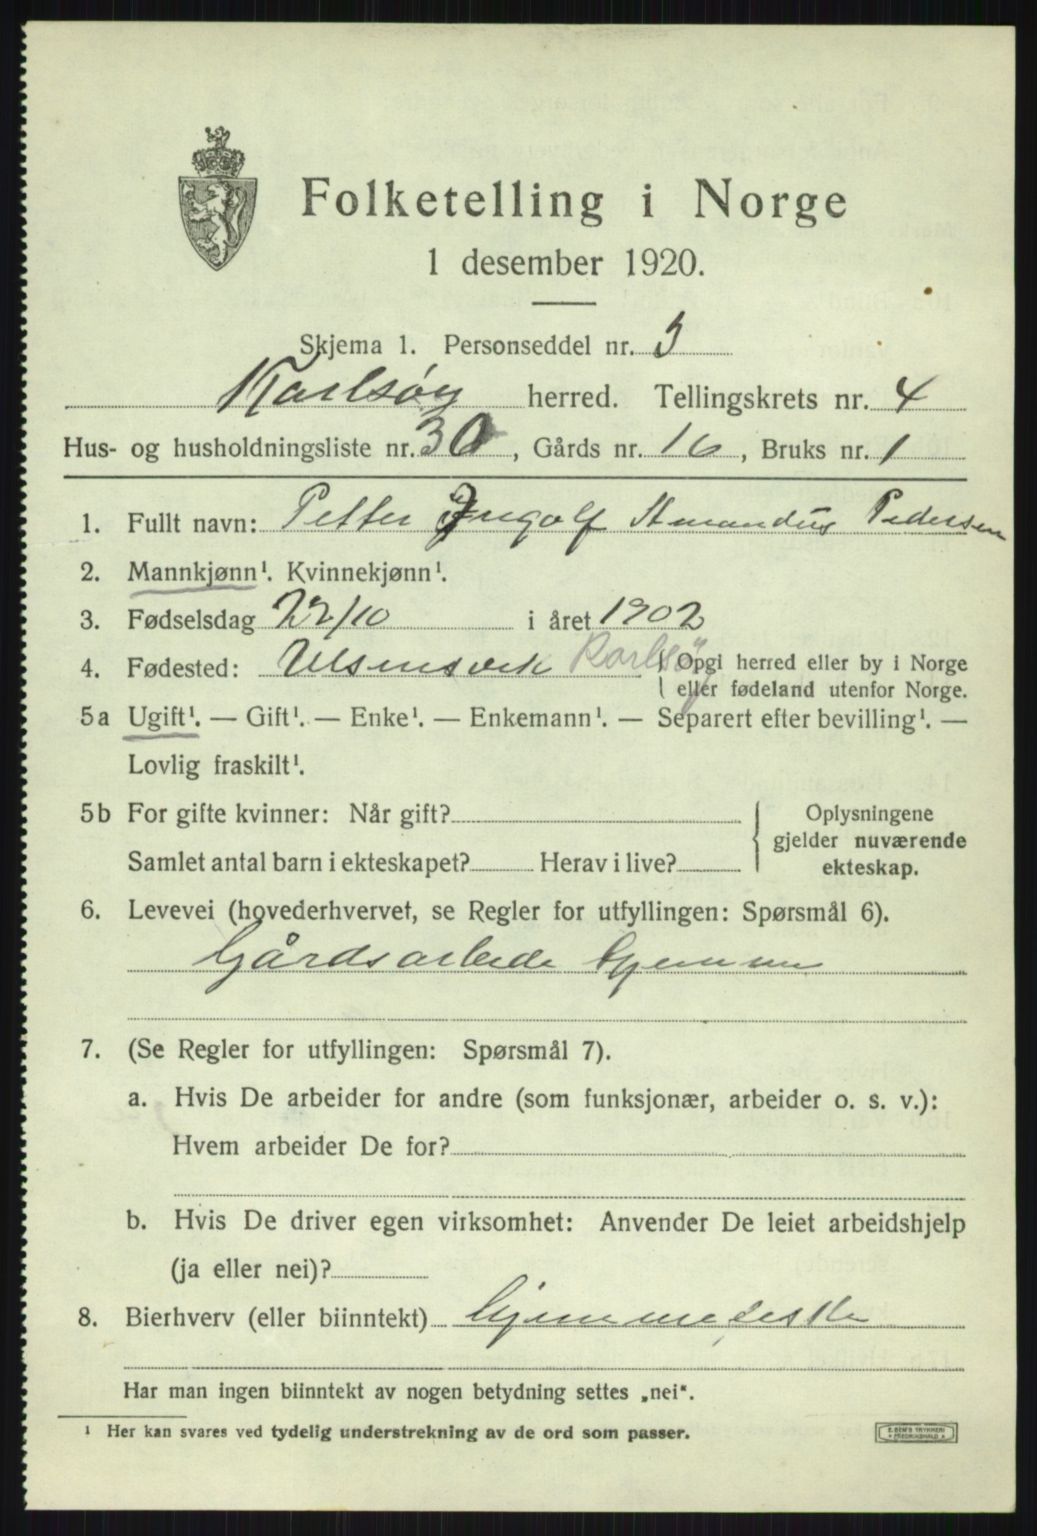 Folketelling i Norge
1 desember 1920.
Skjema 1. Personseddel nr. 3
Karlsøy herred. Tellingskrets nr. 4
Hus- og husholdningsliste nr. 30, Gårds nr. 16, Bruks nr. 1
1. Fullt navn: Petter Ingolf Amandus Pedersen
2. Mannkjønn¹. Kvinnekjønn¹.
3. Fødselsdag 22/10 i året 1902
4. Fødested: Karlsøy { Opgi herred eller by i Norge
eller fødeland utenfor Norge.
5a Ugift¹. — Gift¹. — Enke¹. — Enkemann¹. — Separert efter bevilling¹. —
Lovlig fraskilt¹.
5b For gifte kvinner: Når gift?
Samlet antal barn i ekteskapet? Herav i live?
Oplysningene
gjelder nuværende
ekteskap.
6. Levevei (hovederhvervet, se Regler for utfyllingen: Spørsmål 6).
Gårdsarbeide hjemme
7. (Se Regler for utfyllingen: Spørsmål 7).
a. Hvis De arbeider for andre (som funksjonær, arbeider o. s. v.):
Hvem arbeider De for?
b. Hvis De driver egen virksomhet: Anvender De leiet arbeidshjelp
(ja eller nei)?
8. Bierhverv (eller biinntekt) hjemmefiske
Har man ingen biinntekt av nogen betydning settes „nei“.
¹ Her kan svares ved tydelig understrekning av de ord som passer.